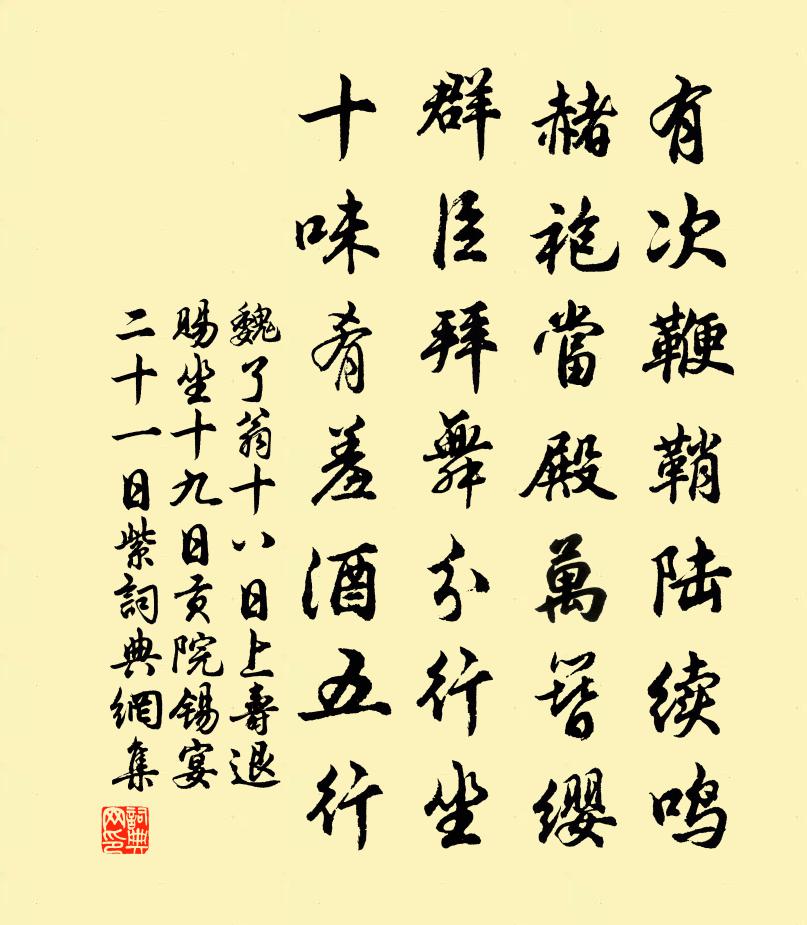 有次鞭鞘陆续鸣
赭袍當殿萬簪缨
群臣拜舞分行坐
十味肴羞酒五行
魏了翁十八日上壽退
賜坐十九日贡院锡宴
二十一日紫詞典網集
詞典网印